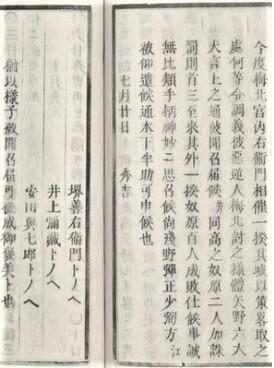 今度梅北宮内右衞門相催一揆其城以策畧取之
處何等令調義彼惡逆人梅北討之樣體矢野六大
夫言上之通被開召屆候并同高之奴原二人加誅
罰則首三至來其外一揆奴原百人成敗仕候事誠
無比類手柄神妙ニ思召候尙淺野彈正少弼方江
被仰遣候通木下半助可申候也
七月廿日　秀吉
堺善右衞門トノヘ
井上彌藏トノヘ
安田與七郎トノヘ
猶以樣子被開召屆可被成御褒美ト也